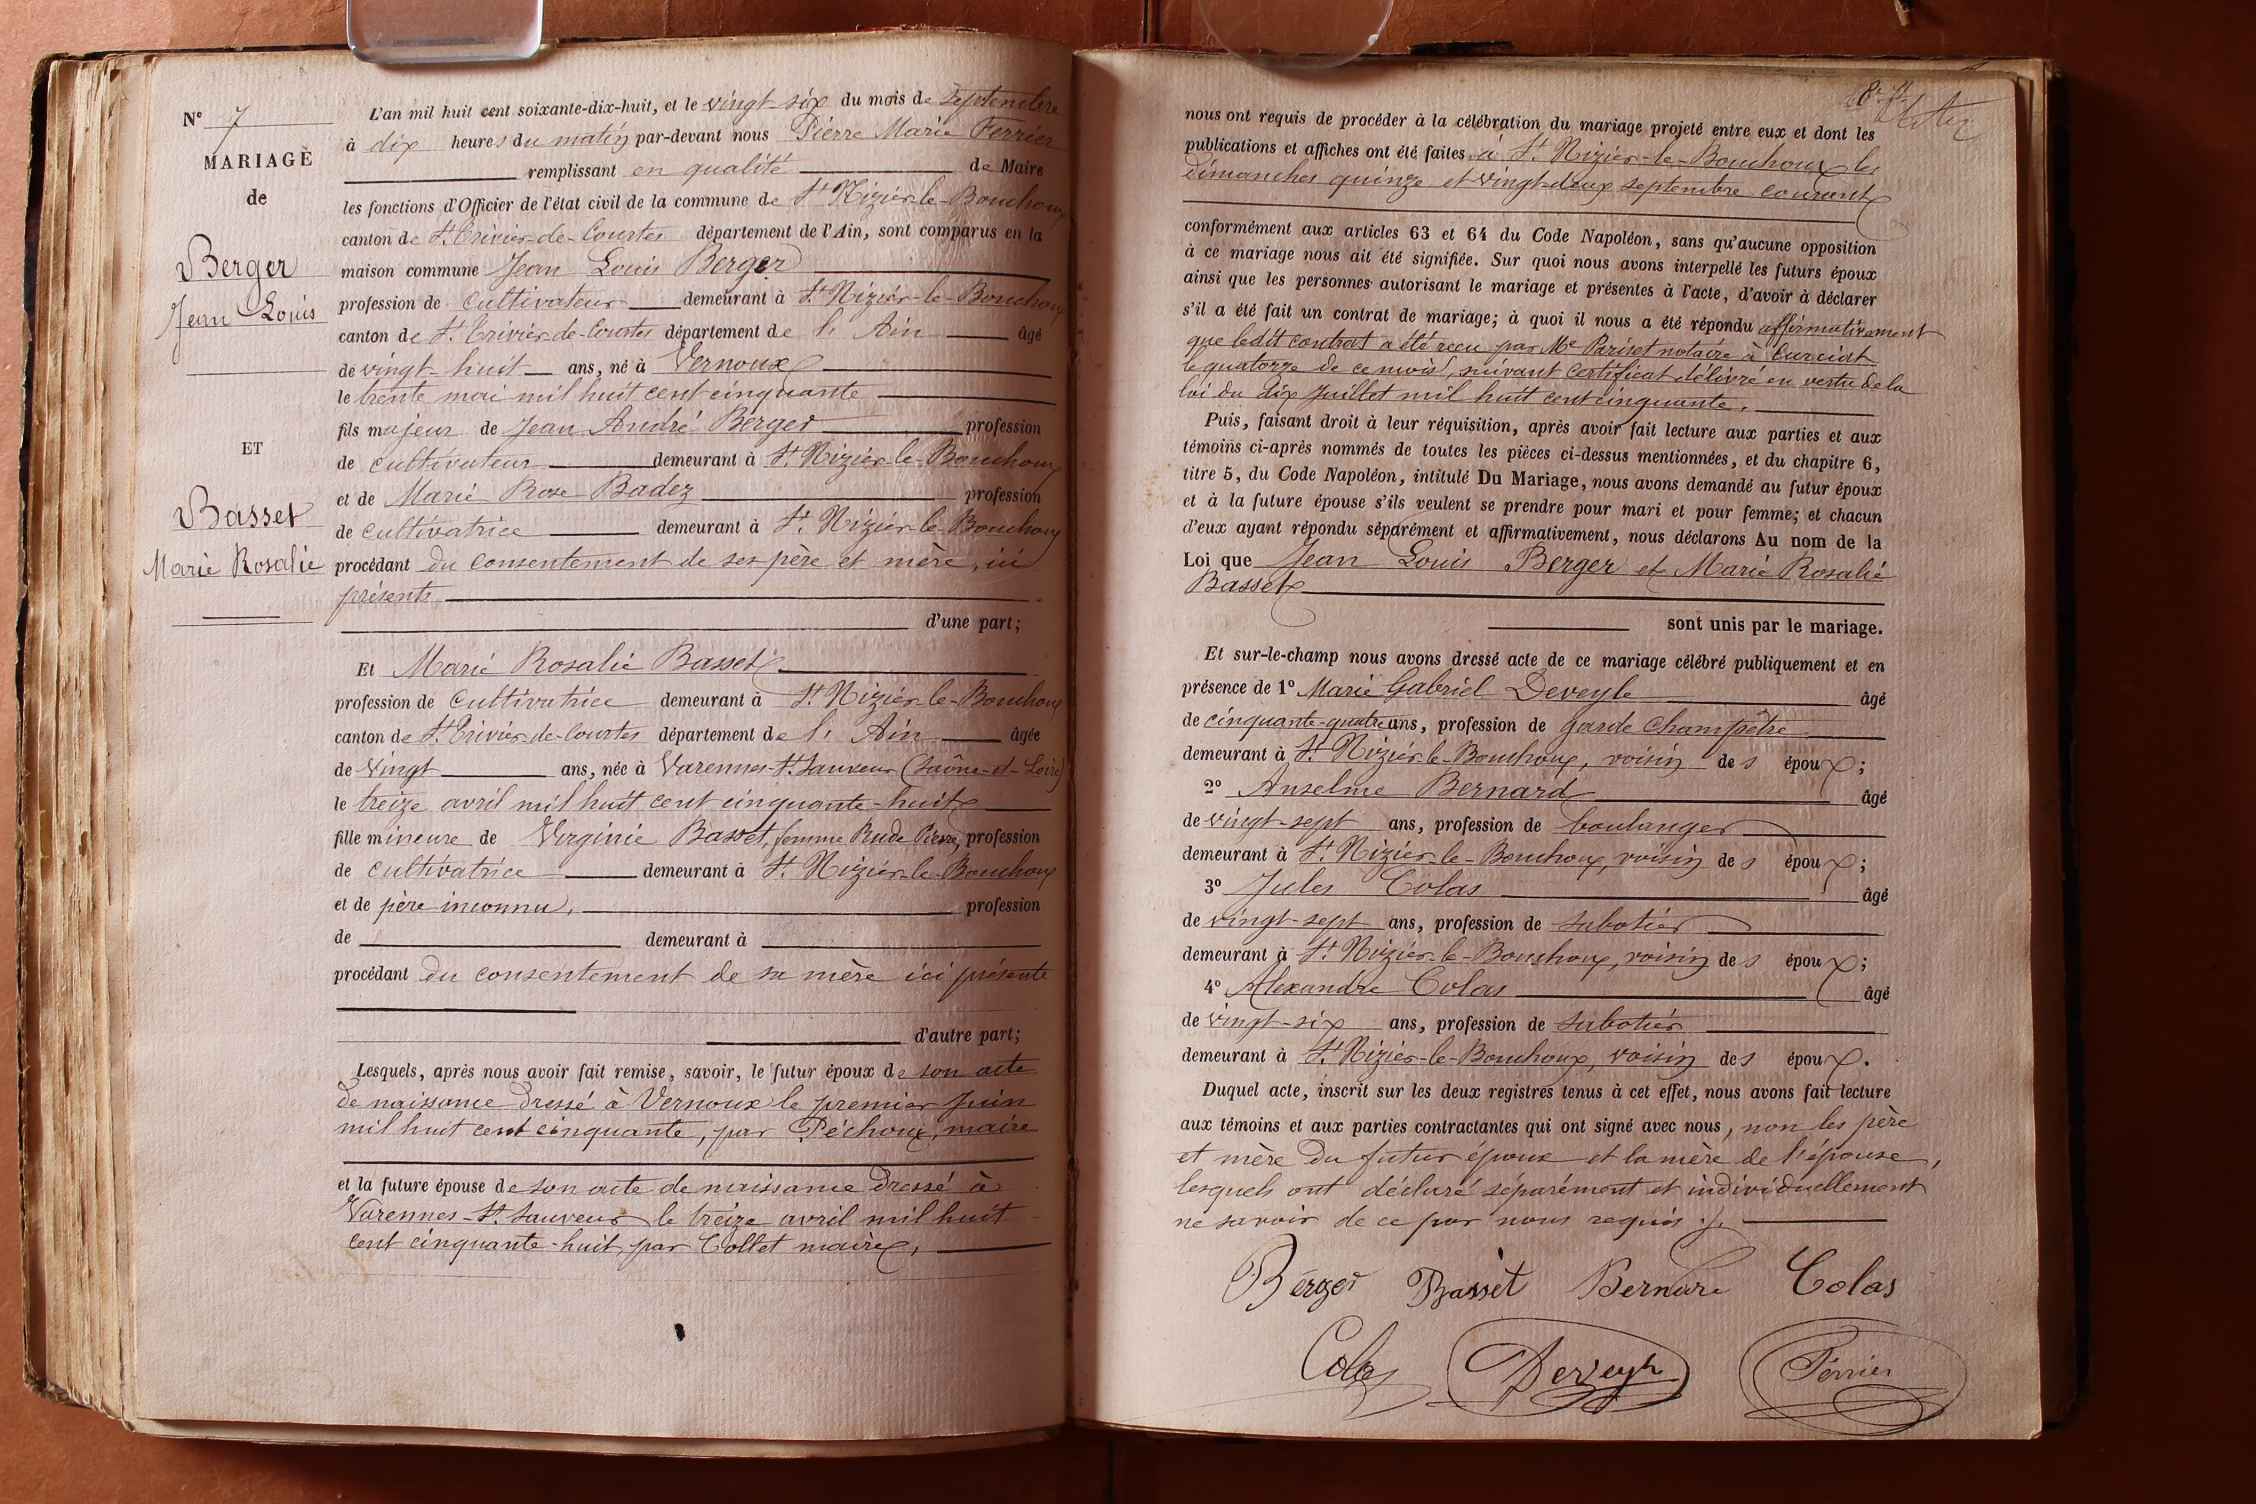 N° 7
MARIAGE
de
Berger
Jean Louis
ET
Basset
Marie Rosalie
L'an mil huit cent soixante-dix-huit, et le vingt-six du mois de septembre
à dix heures du matin par-devant nous Pierre Marie Ferrier
remplissant en qualité de Maire
les fonctions d'Officier de l'état civil de la commune de St Nizier-le-Bouchoux
canton de St Trivier-de-Courtes département de l'Ain, sont comparus en la
maison commune Jean Louis Berger
profession de cultivateur demeurant à St Nizier-le-Bouchoux
canton de St Trivier-de-Courtes département de l'Ain âgé
de vingt-huit ans, né à Vernoux
le trente mai mil huit cent cinquante
fils majeur de Jean André Berger profession
de cultivateur demeurant à St Nizier-le-Bouchoux
et de Marie Rose Badez profession
de cultivatrice demeurant à St Nizier-le-Bouchoux
procédant du consentement de ses père et mère, ici
présents
d'une part;
Et Marie Rosalie Basset
profession de cultivatrice demeurant à St Nizier-le-Bouchoux
canton de St Trivier-de-Courtes département de l'Ain âgée
de vingt ans, née à Varennes-St Sauveur (Saône-et-Loire)
le treize avril mil huit cent cinquante-huit
fille mineure de Virginie Basset, femme Rude Pierre, profession
de cultivatrice demeurant à St Nizier-le-Bouchoux
et de père inconnu, profession
de demeurant à
procédant du consentement de sa mère ici présente
d'autre part;
Lesquels, après nous avoir fait remise, savoir, le futur époux de son acte
de naissance dressé à Vernoux le premier juin
mil huit cent cinquante, par Péchoux, maire
et la future épouse de son acte de naissance dressé à
Varennes-St Sauveur le treize avril mil huit
cent cinquante-huit, par Collet maire,
nous ont requis de procéder à la célébration du mariage projeté entre eux et dont les
publications et affiches ont été faites à St Nizier-le-Bouchoux les
dimanches quinze et vingt-deux septembre courant
conformément aux articles 63 et 64 du Code Napoléon, sans qu'aucune opposition
à ce mariage nous ait été signifiée. Sur quoi nous avons interpellé les futurs époux
ainsi que les personnes autorisant le mariage et présentes à l'acte, d'avoir à déclarer
s'il a été fait un contrat de mariage; à quoi il nous a été répondu affirmativement
que ledit contrat a été reçu par Me Pariset notaire à Curciat
le quatorze de ce mois, suivant certificat délivré en vertu de la
loi du dix juillet mil huit cent cinquante.
Puis, faisant droit à leur réquisition, après avoir fait lecture aux parties et aux
témoins ci-après nommés de toutes les pièces ci-dessus mentionnées, et du chapitre 6,
titre 5, du Code Napoléon, intitulé Du Mariage, nous avons demandé au futur époux
et à la future épouse s'ils veulent se prendre pour mari et pour femme; et chacun
d'eux ayant répondu séparément et affirmativement, nous déclarons Au nom de la
Loi que Jean Louis Berger et Marie Rosalie
Basset
sont unis par le mariage.
Et sur-le-champ nous avons dressé acte de ce mariage célébré publiquement et en
présence de 1° Marie Gabriel Deveyle âgé
de cinquante-quatre ans, profession de garde champêtre
demeurant à St Nizier-le-Bouchoux, voisin des époux;
2° Anselme Bernard âgé
de vingt-sept ans, profession de boulanger
demeurant à St Nizier-le-Bouchoux, voisin des époux;
3° Jules Colas âgé
de vingt-sept ans, profession de sabotier
demeurant à St Nizier-le-Bouchoux, voisin des époux;
4° Alexandre Colas âgé
de vingt-six ans, profession de sabotier
demeurant à St Nizier-le-Bouchoux, voisin des époux.
Duquel acte, inscrit sur les deux registres tenus à cet effet, nous avons fait lecture
aux témoins et aux parties contractantes qui ont signé avec nous, non les père
et mère du futur époux et la mère de l'épouse,
lesquels ont déclaré séparément et individuellement
ne savoir de ce par nous requis ./.
Berger Basset Bernard Colas
Colas Deveyle Ferrier